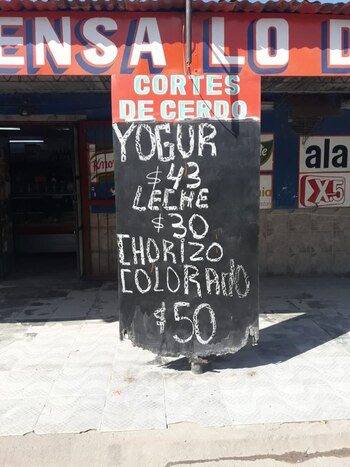 ENSA LO D
CORTES
DE CERDO
YOGUR
$43
LECHE
$30
CHORIZO
COLORADO
$50
Knorr
ala
X5